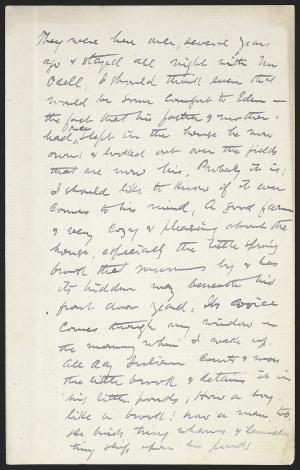 They were here once, several years
ago & stayed all night with Mr
Odell; I should think even that
would be some comfort to Eden —
the fact that his father & mother
had once slept in the house he now
owns & looked out over the fields
that are now his, Probably it is;
I should like to know if it ever
comes to his mind, A good farm
& very cozy & pleasing about the
house, especially the little spring
brook that murmurs by & has
its hidden way beneath his
front door yard, Its voice
comes through my window in
the morning when I wake up.
All day Julian courts & woos
the little brook & detains it in
his little ponds, How a boy
like a brook! how a man too
He builds tiny wharves & launches
tiny ships upon his ponds